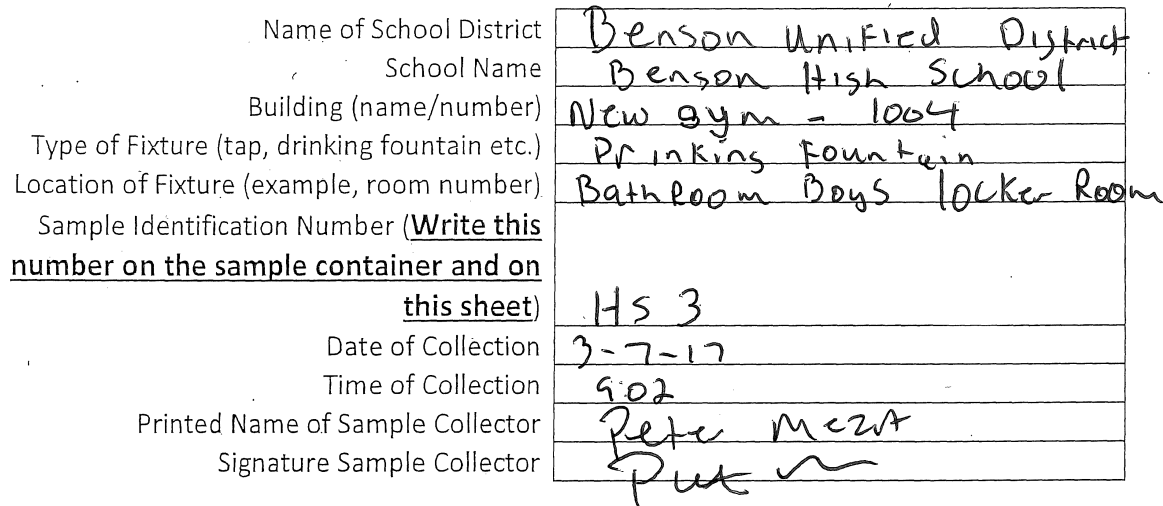 Name of School District Benson Unified District
School Name Benson High School
Building (name/number) New gym - 1004
Type of Fixture (tap, drinking fountain etc.) Drinking Fountain
Location of Fixture (example, room number) Bathroom Boys locker Room
Sample Identification Number (Write this
number on the sample container and on
this sheet) HS 3
Date of Collection 3-7-17
Time of Collection 9:02
Printed Name of Sample Collector Pete Meza
Signature Sample Collector